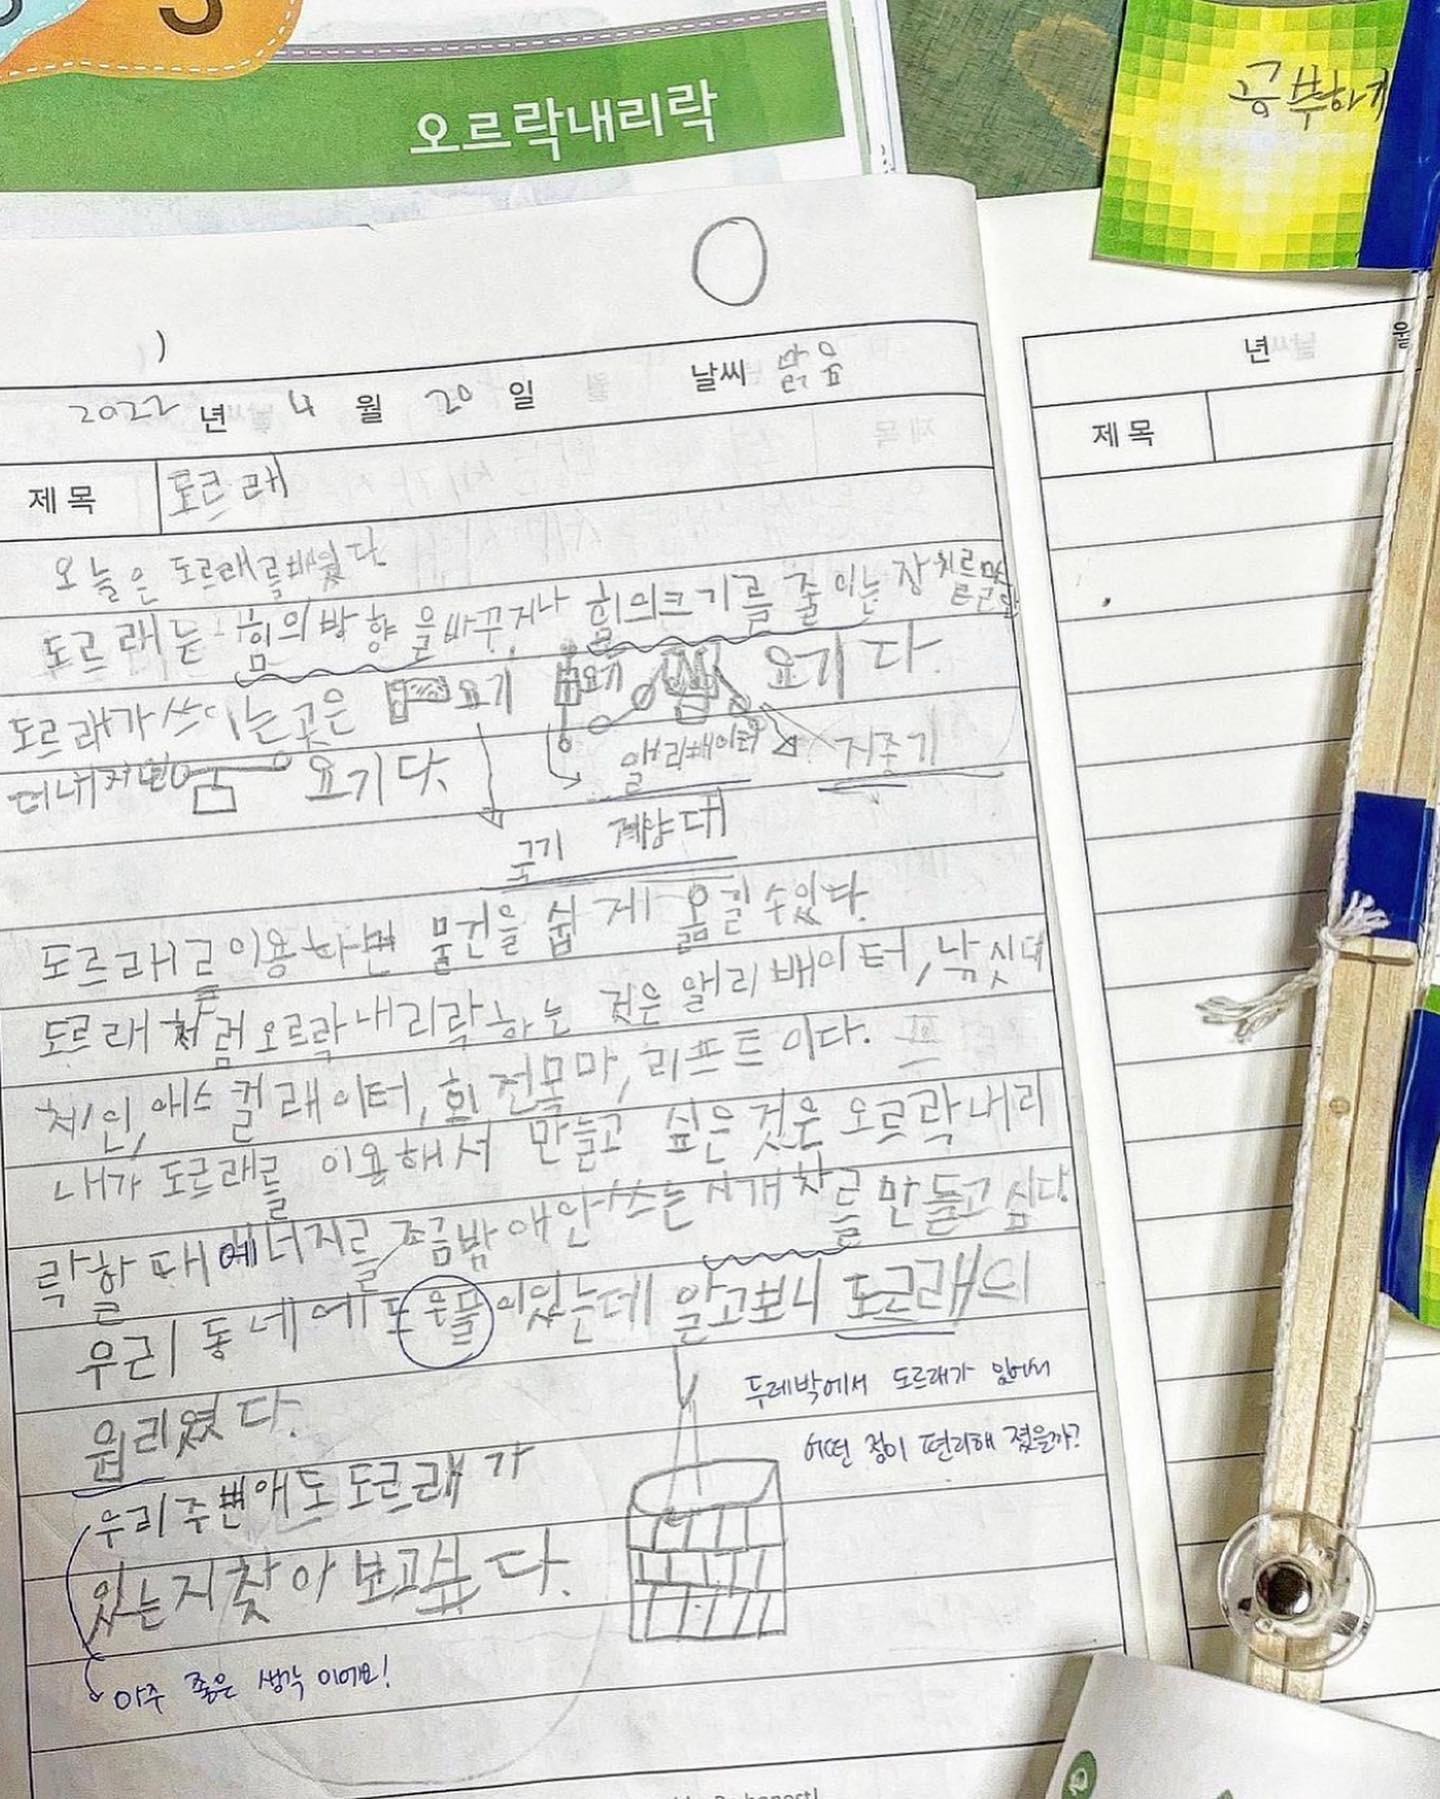 오르락내리락
공부하
2022 년 4 월 20 일 날씨 맑음
년 월
제 목 도르래
제 목
오늘은 도르래를배웠다
도르래는 힘의방향을바꾸거나 힘의크기를 줄이는장치를
도르래가쓰이는곳은 요기 요기 요기다.
요기다.
앨리배이터 지중기
국기 계양대
도르래를이용하면 물건을 쉽게 옮길수있다.
도르래처럼오르락내리락하는 것은 앨리배이터, 낚싯대
체인, 애스컬래이터, 회전목마, 리프트이다.
내가 도르래를 이용해서 만들고 싶은것은 오르락내리
락할때에너지를 쪼금밖애안쓰는 시개차를만들고싶다
우리동네에도우물이있는데 알고보니 도르래의
원리였다.
두레박에서 도르래가 있어서
어떤 점이 편리해 졌을까?
우리주변애도도르래가
있는지찾아보고싶다.
아주 좋은 생각이에요!